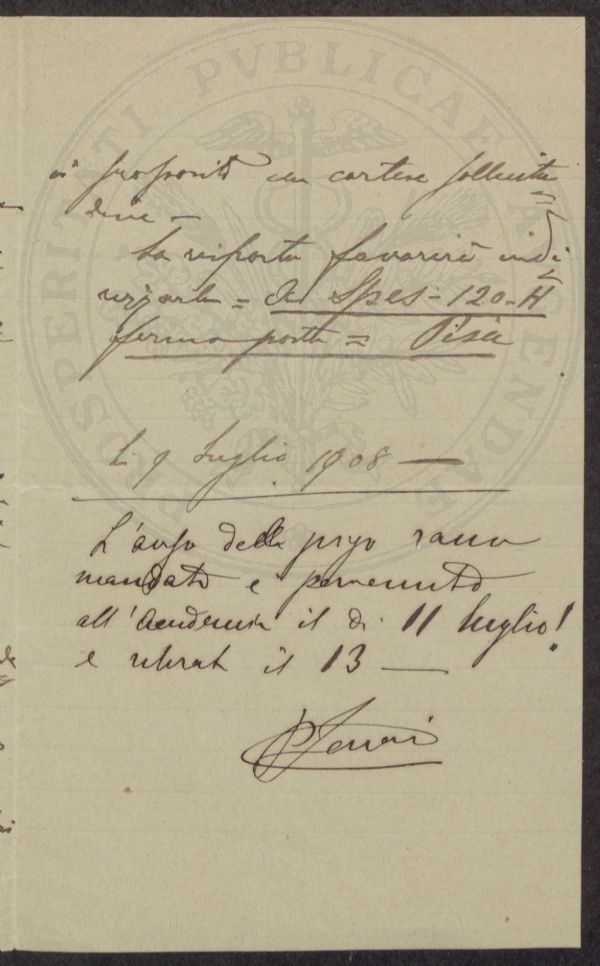 in proposito con cortese sollecitu=
dine —
La risposta favorirà indi
rizzarla = a Spes - 120 - H
fermo posta = Pisa
Li 9 Luglio 1908 —
L'avviso della piego racco
mandato è pervenuto
all'Accademia il dì 11 luglio!
e ritirato il 13 —
PROSPERITATI PVBLICAE AVGENDAE